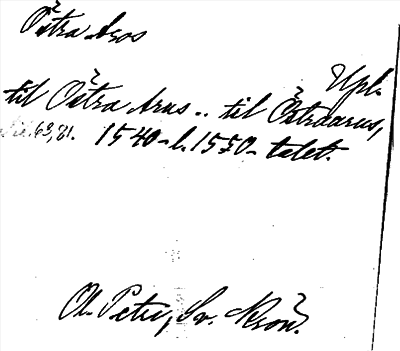 Östra Aros
Upl.
til Östra Arus .. til Östraarus,
s. 63, 81. 1540- l. 1550- talet.
Ol. Petri, Sv. Krön.